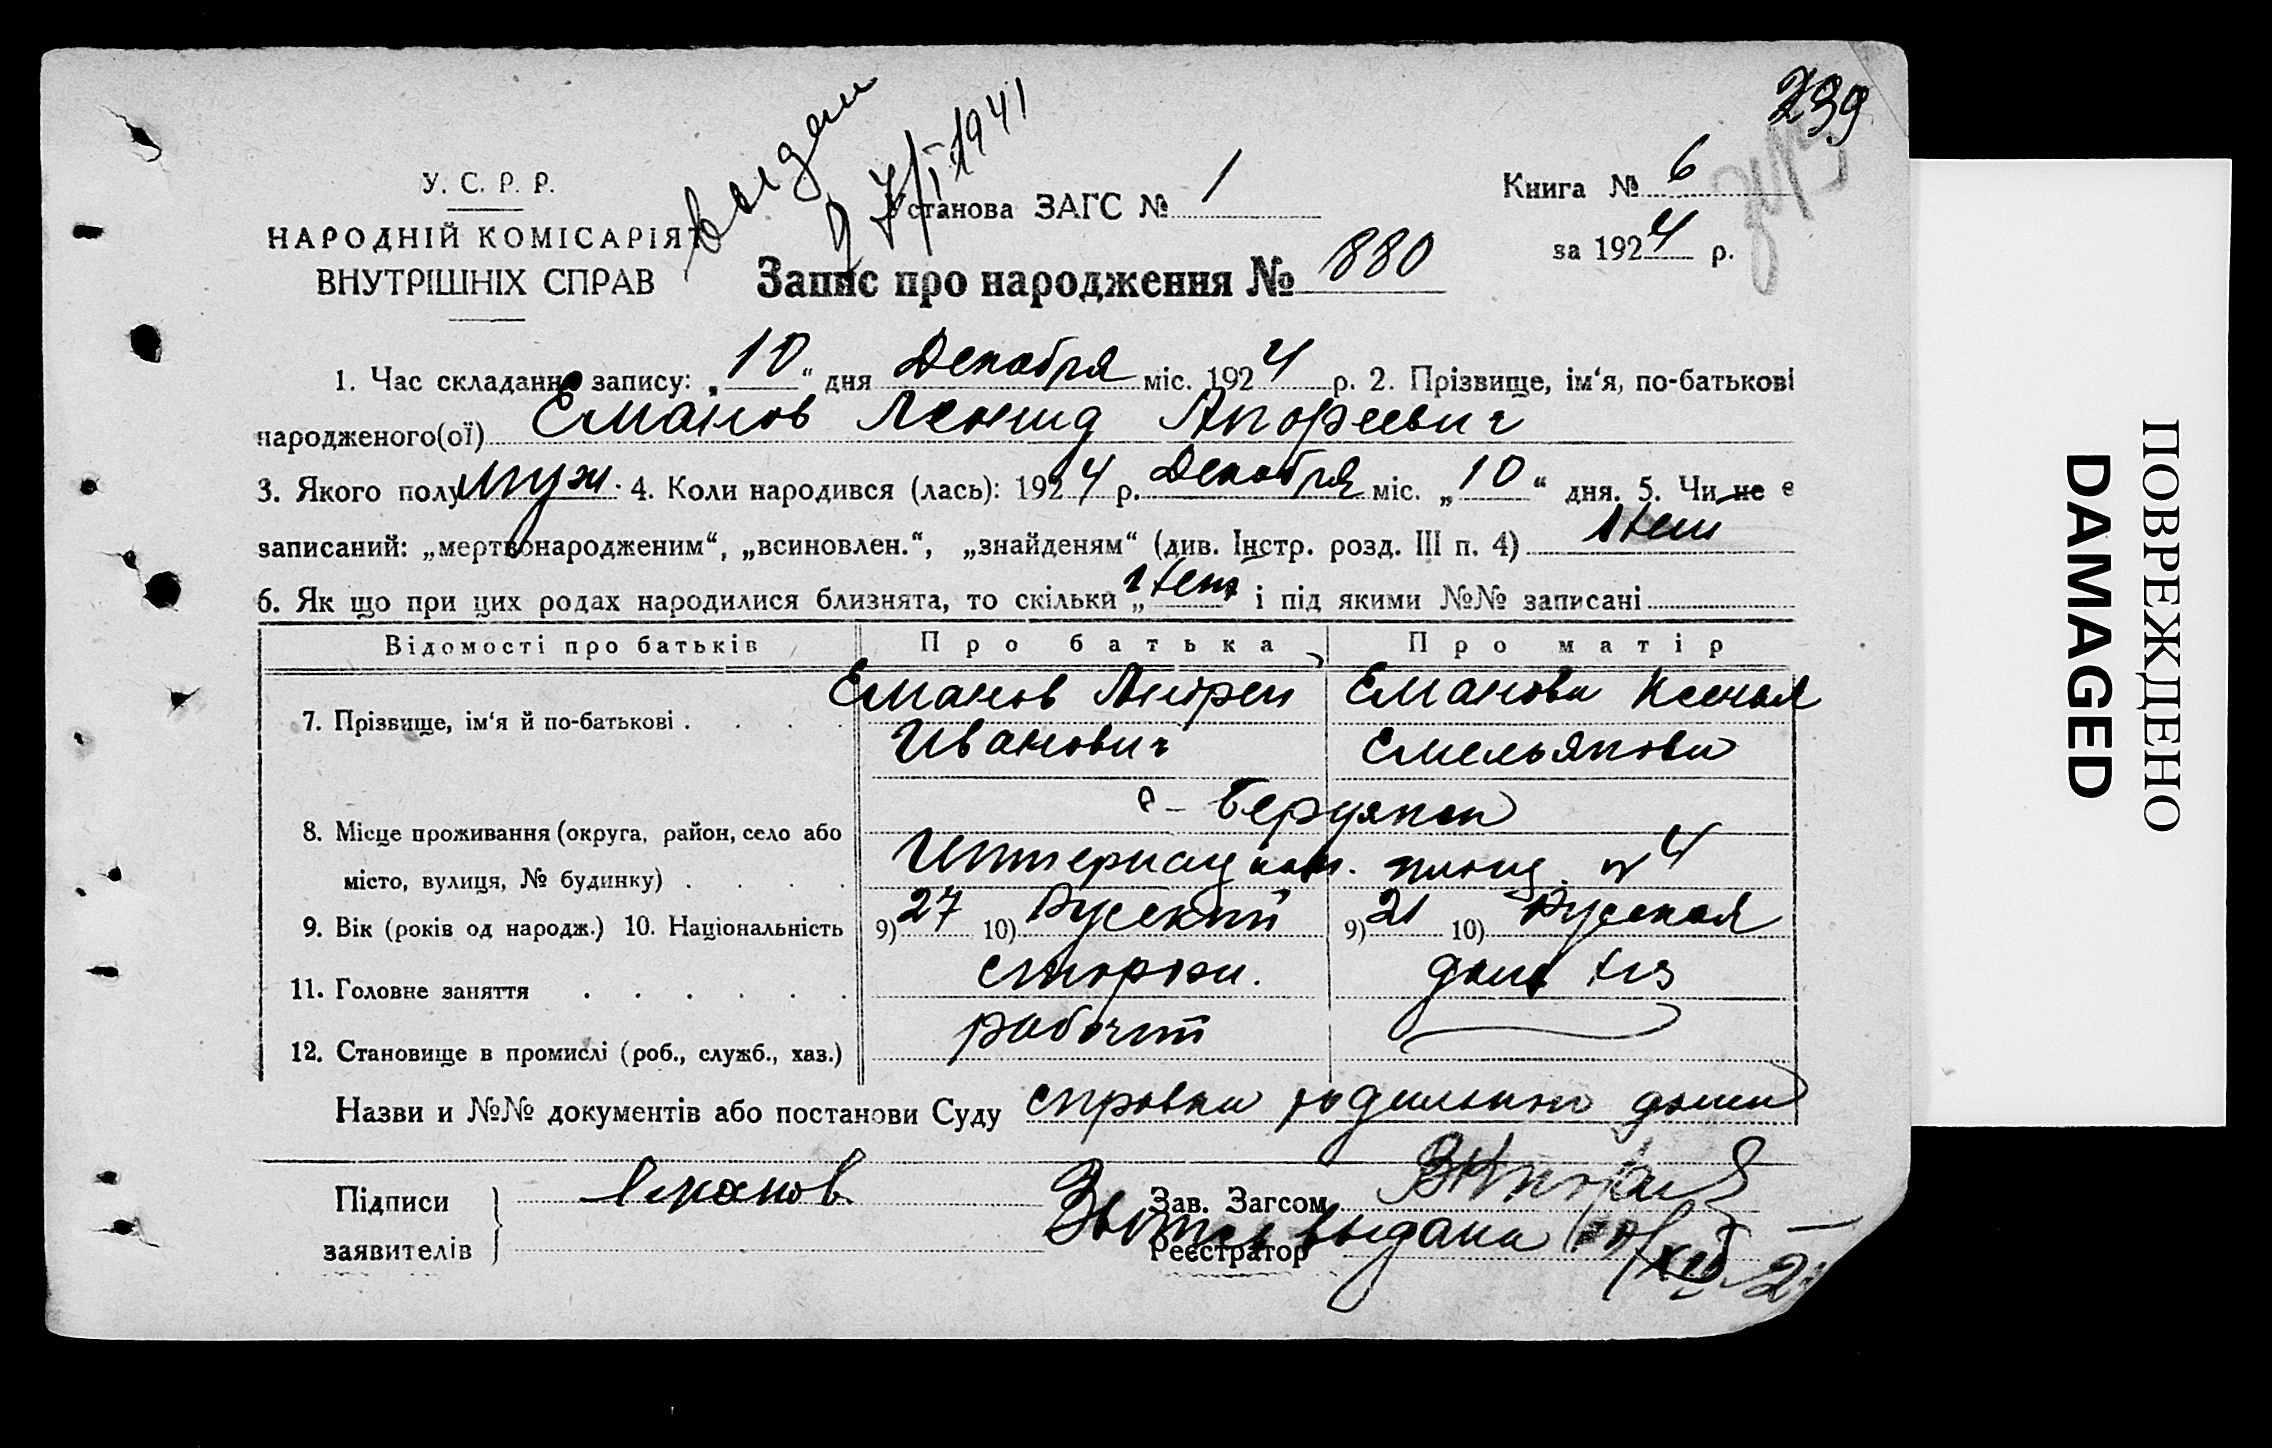 239
У. С. Р. Р.
НАРОДНІЙ КОМІСАРІЯТ
ВНУТРІШНІХ СПРАВ
выдан
7/I 1941
Установа ЗАГС № 1
Книга № 6
за 1924 р.
Запис про народження № 880
1. Час складання запису: „10“ дня Декабря міс. 1924 р. 2. Прізвище, ім‘я, по-батькові
народженого(ої) Еманов Леонид Андреевич
3. Якого полу муж. 4. Коли народився (лась): 1924 р. Декабря міс. „10“ дня. 5. Чи не є
записаний: „мертвонародженим“, „всиновлен.“, „знайденям“ (див. Інстр. розд. III п. 4) Нет
6. Як що при цих родах народилися близнята, то скільки „нет“ і під якими №№ записані
Відомості про батьків Про батька Про матір
7. Прізвище, ім‘я й по-батькові . . . . Еманов Андреи Еманова Ксения
Иванович Емельянова
г- Бердянск
8. Місце проживання (округа, район, село або
місто, вулиця, № будинку) . . . . Интернацион. площ. № 4
9. Вік (років од народж.) 10. Національність 9) 27 10) Русский 9) 21 10) Русская
11. Головне заняття . . . . . . сторож. дом хоз
12. Становище в промислі (роб., служб., хаз.) рабочий
Назви и №№ документів або постанови Суду справка родильного дома
Підписи Еманов Зав. Загсом
заявителів Реєстратор
выдана
ПОВРЕЖДЕНО
DAMAGED